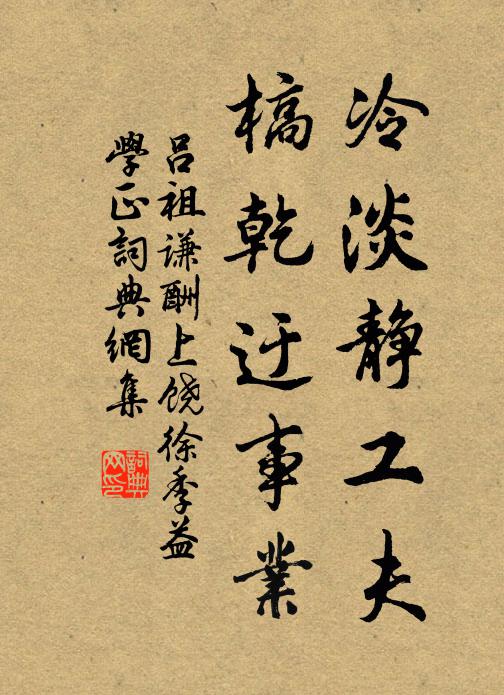 冷淡静工夫
槁乾迂事業
吕祖谦酬上饶徐季益
學正詞典網集
詞典网印